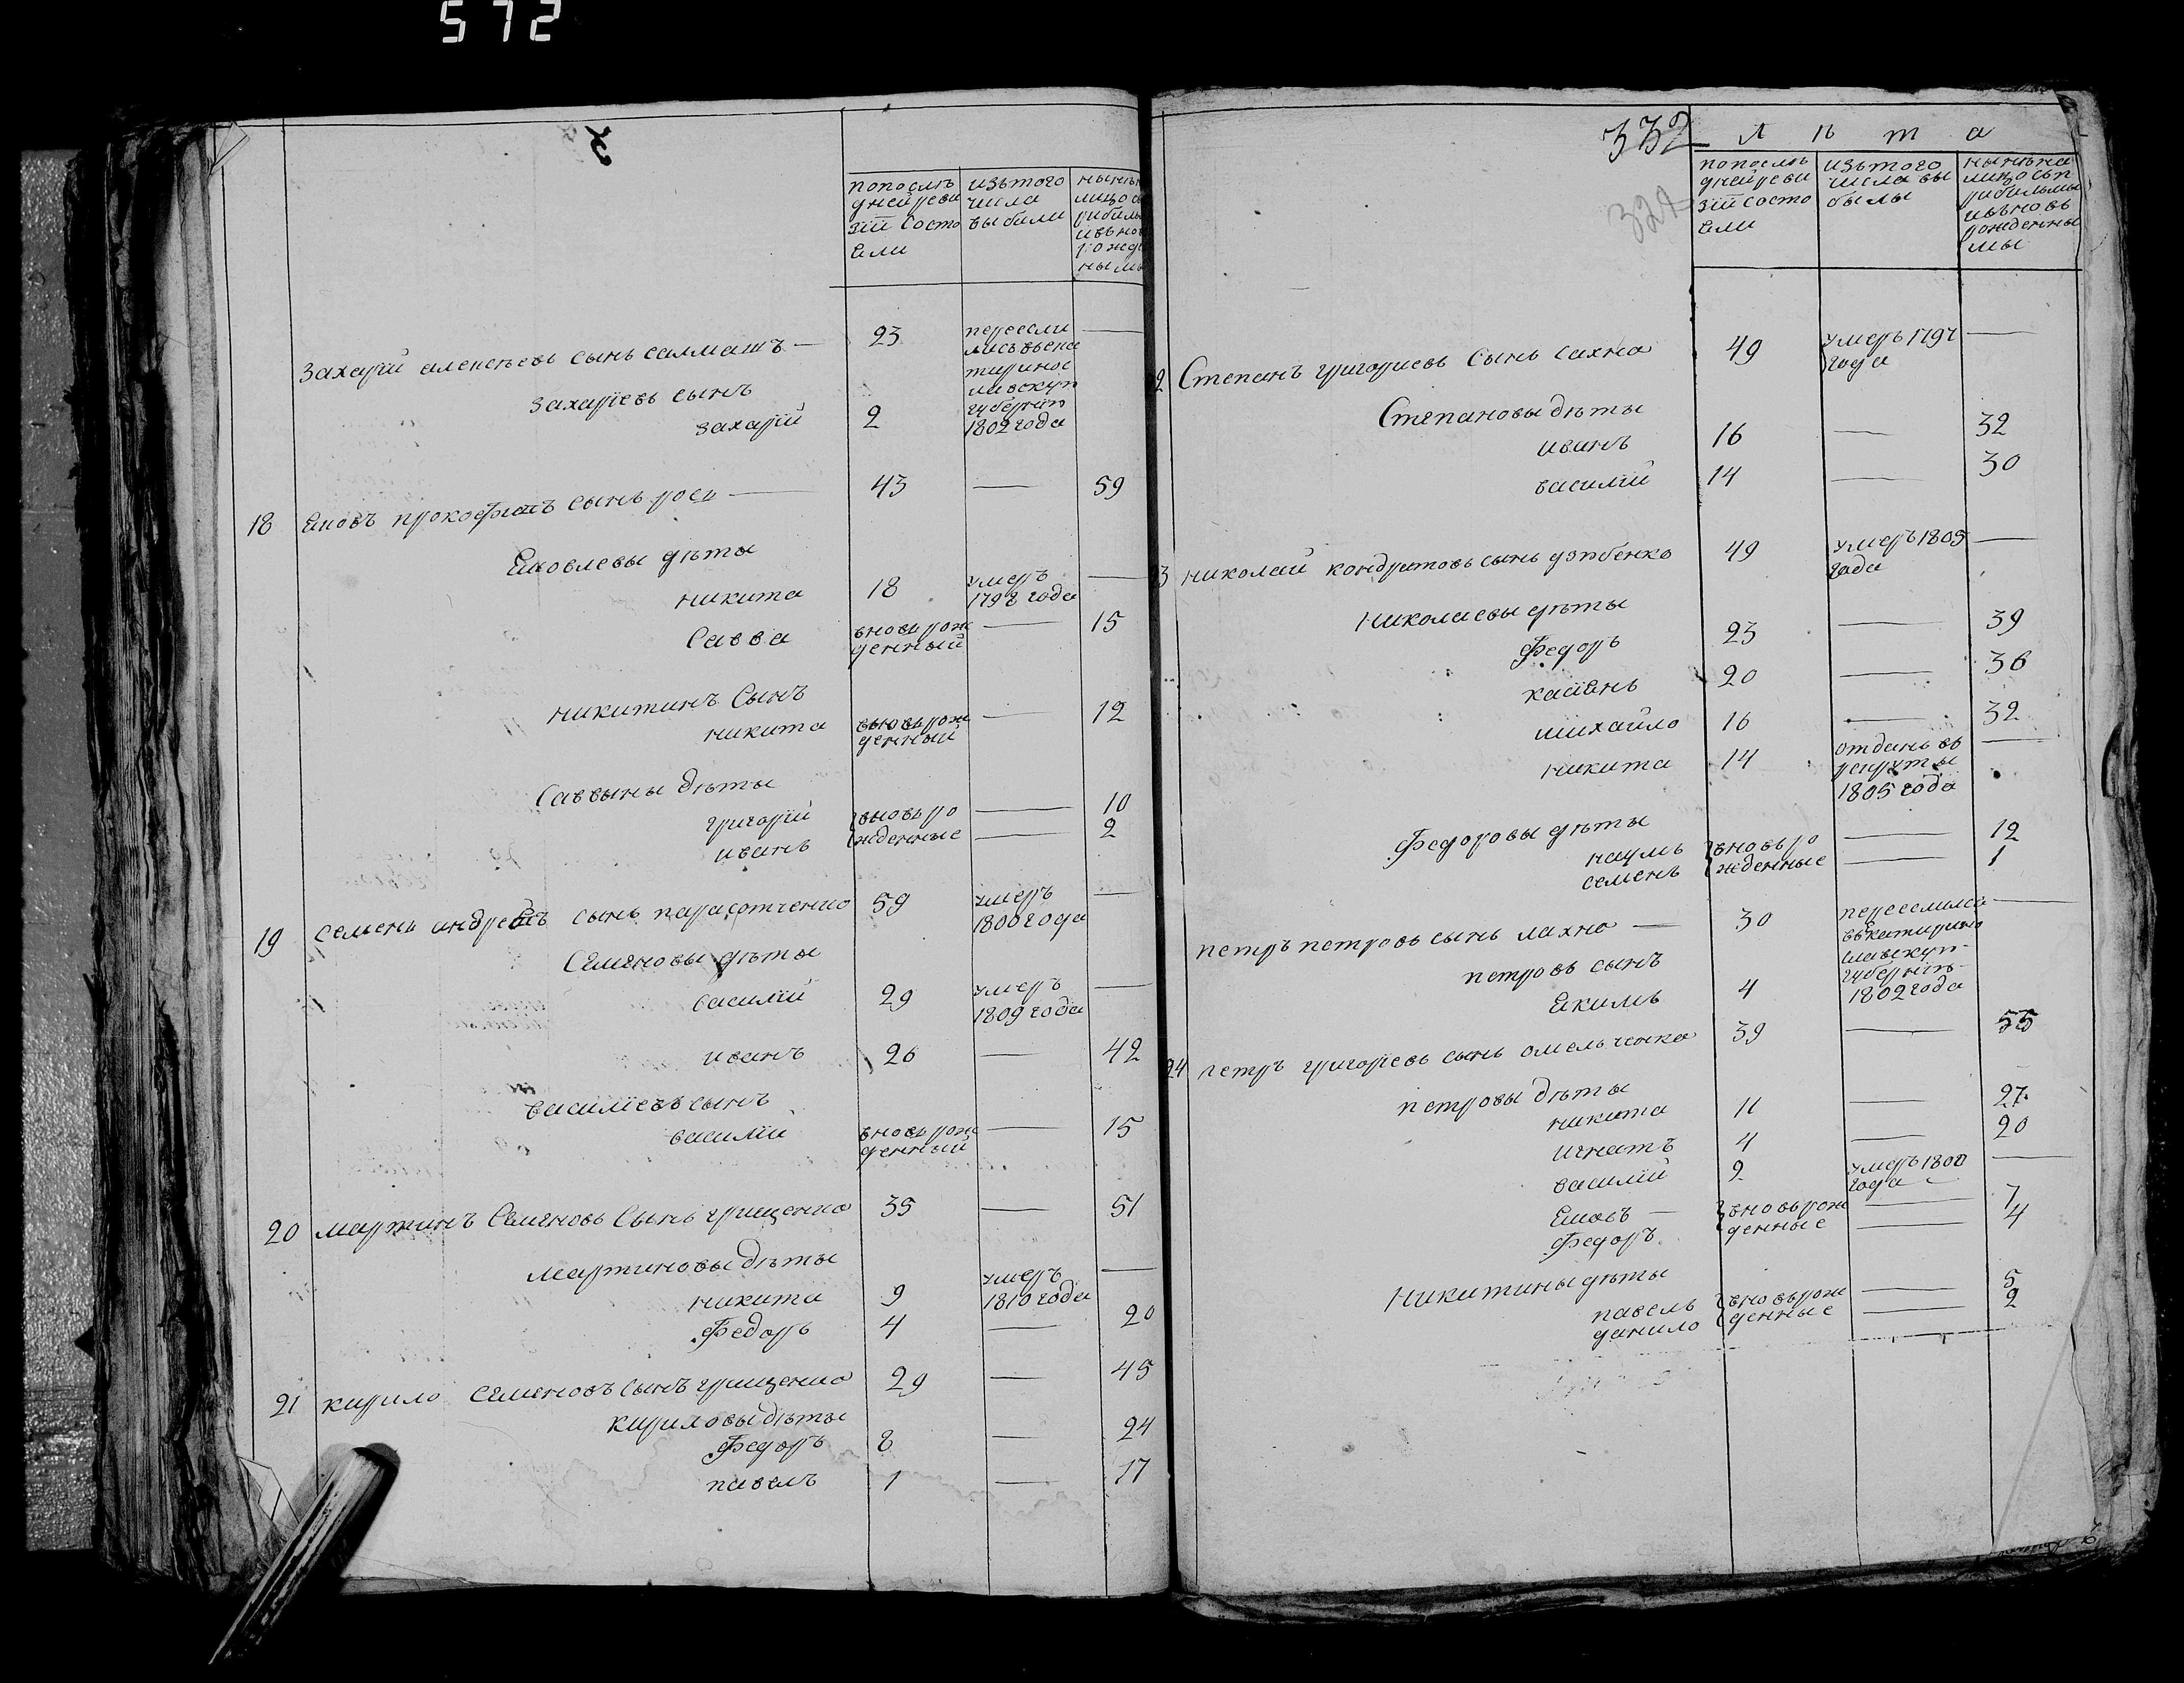 572
попослѣ
днеи реви
зіи Состо
Ели
изътого
числа
выбили
Захарій алексѣевъ сынъ салмашъ — 23 пересели —
лисъ вьека
терино
славскую
губернію
1802 года
Захаріевъ сынъ
захарій 2
18 Ековъ прокофіевъ сынъ — 43 — 59
Ековлевы дѣти
никита 18 умеръ —
1798 года
Савва вновь рож — 15
денный
никитинъ Сынъ
никита вновь рож — 12
денный
Саввины дѣти
григорій вновь ро — 10
иванъ жденные — 2
19 семенъ андреевъ сынъ 59 умеръ —
1800 года
Семеновы дѣти
василій 29 умеръ —
1809 года
иванъ 26 — 42
василіевъ сынъ
василій вновь рож — 15
денный
20 мартинъ Семеновъ Сынъ грищенко 35 — 51
мартиновы дѣти
никита 9 умеръ —
1810 года
Федоръ 4 — 20
21 кирило Семеновъ Сынъ грищенко 29 — 45
кириловы дѣти
Федоръ 8 — 24
павелъ 1 — 17
332
322
л ѣ т а
попослѣ
дней реви
зіи Состо
Ели
изътого
числа вы
былы
нынѣ на
лицо съ п
рибылымы
ивъновь
рожденны
мы
2 Степанъ григориевъ Сынъ сахно 49 умеръ 1797 —
года
Степановы дѣты
иванъ 16 — 32
василій 14 — 30
3 николай кондратовъ сынъ 49 умеръ 1805 —
года
Николаевы дѣты
Федоръ 23 — 39
касіянъ 20 — 36
михайло 16 — 32
никита 14 отданъ въ —
рекруты
1805 года
Федоровы дѣты
наумъ вновь ро — 12
семенъ жденные — 1
петръ петровъ сынъ лахно — 30 переселился —
въ Катирино
славскую
губернію
1802 года
петровъ сынъ
Екимъ 4
24 петръ григорьевъ сынъ омельченко 39 — 55
петровы дѣты
никита 11 — 27
игнатъ 4 — 20
василій 2 умеръ 1800 —
года
Ековъ — вновь рож — 7
Федоръ денные — 4
Никитины дѣты
павелъ вновь рож — 5
данило денные — 2